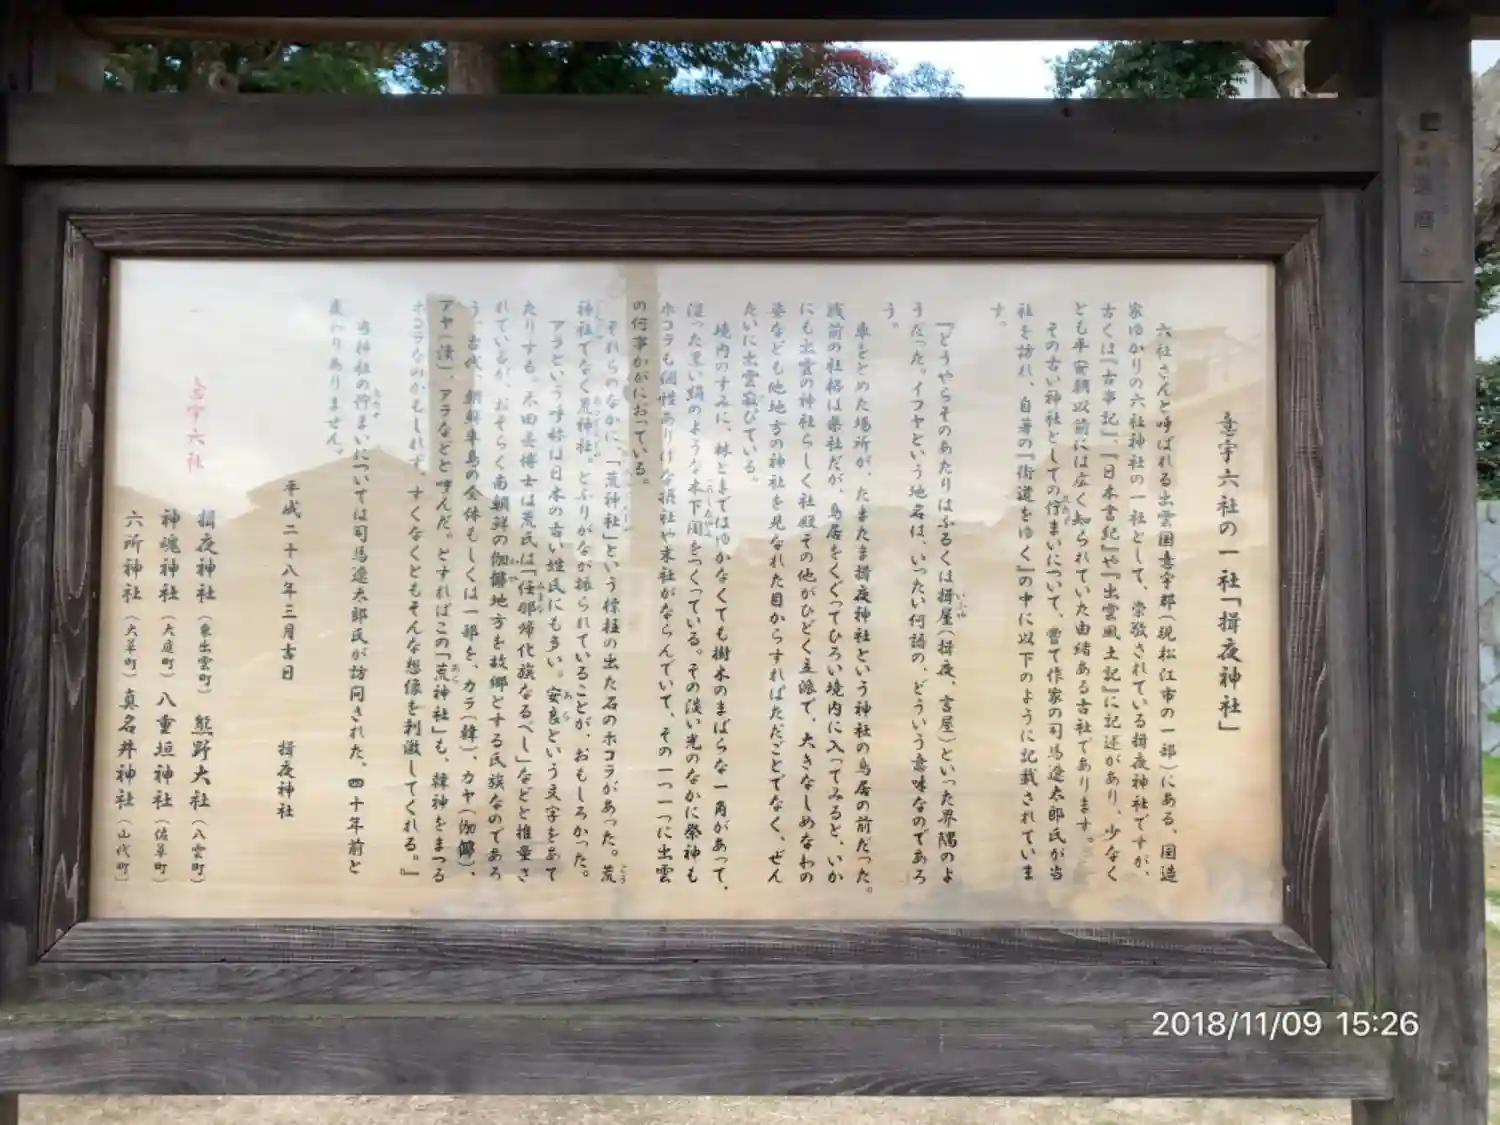 意宇六社の一社「揖夜神社」
六社さんと呼ばれる出雲国意宇郡(現松江市の一部)にある、国造
家ゆかりの六社神社の一社として、崇敬されている揖夜神社ですが、
古くは『古事記』『日本書紀』や『出雲風土記』に記述があり、少なく
とも平安朝以前には広く知られていた由緒ある古社であります。
その古い神社としての佇まいについて、曽て作家の司馬遼太郎氏が当
社を訪れ、自著の『街道をゆく』の中に以下のように記載されていま
す。
『どうやらそのあたりはふるくは揖屋(揖夜、言屋)といった界隈のよ
うだった。イフヤという地名は、いったい何語の、どういう意味なのであろ
う。
車をとめた場所が、たまたま揖夜神社という神社の鳥居の前だった。
戦前の社格は県社だが、鳥居をくぐってひろい境内に入ってみると、いか
にも出雲の神社らしく社殿その他がひどく立派で、大きなしめなわの
姿なども他地方の神社を見なれた目からすればただごとでなく、ぜん
たいに出雲寂びている。
境内のすみに、林とまではゆかなくても樹木のまばらな一角があって、
湿った黒い絹のような木下闇をつくっている。その淡い光のなかに祭神も
ホコラも個性ありげな摂社や末社がならんでいて、その一つ一つに出雲
の何事かがにおっている。
それらのなかに、「荒神社」という標柱の出た石のホコラがあった。荒
神社でなく荒神社。とふりがなが振られていることが、おもしろかった。
アラという呼称は日本の古い姓氏にも多い。安良という文字をあて
たりする。太田亮博士は荒氏は「任那帰化族なるべし」などと推量さ
れているが、おそらく南朝鮮の伽耶地方を故郷とする氏族なのであろ
う。古代、朝鮮半島の全体もしくは一部を、カラ(韓)、カヤ(伽耶)、
アヤ(漢)、アラなどと呼んだ。とすればこの「荒神社」も、韓神をまつる
ホコラなのかもしれず、すくなくともそんな想像を刺激してくれる。』
当神社の佇まいについては司馬遼太郎氏が訪問された。四十年前と
変わりありません。
平成二十八年三月吉日 揖夜神社
意宇六社
揖夜神社(東出雲町) 熊野大社(八雲町)
神魂神社(大庭町) 八重垣神社(佐草町)
六所神社(大草町) 真名井神社(山代町)
2018/11/09 15:26